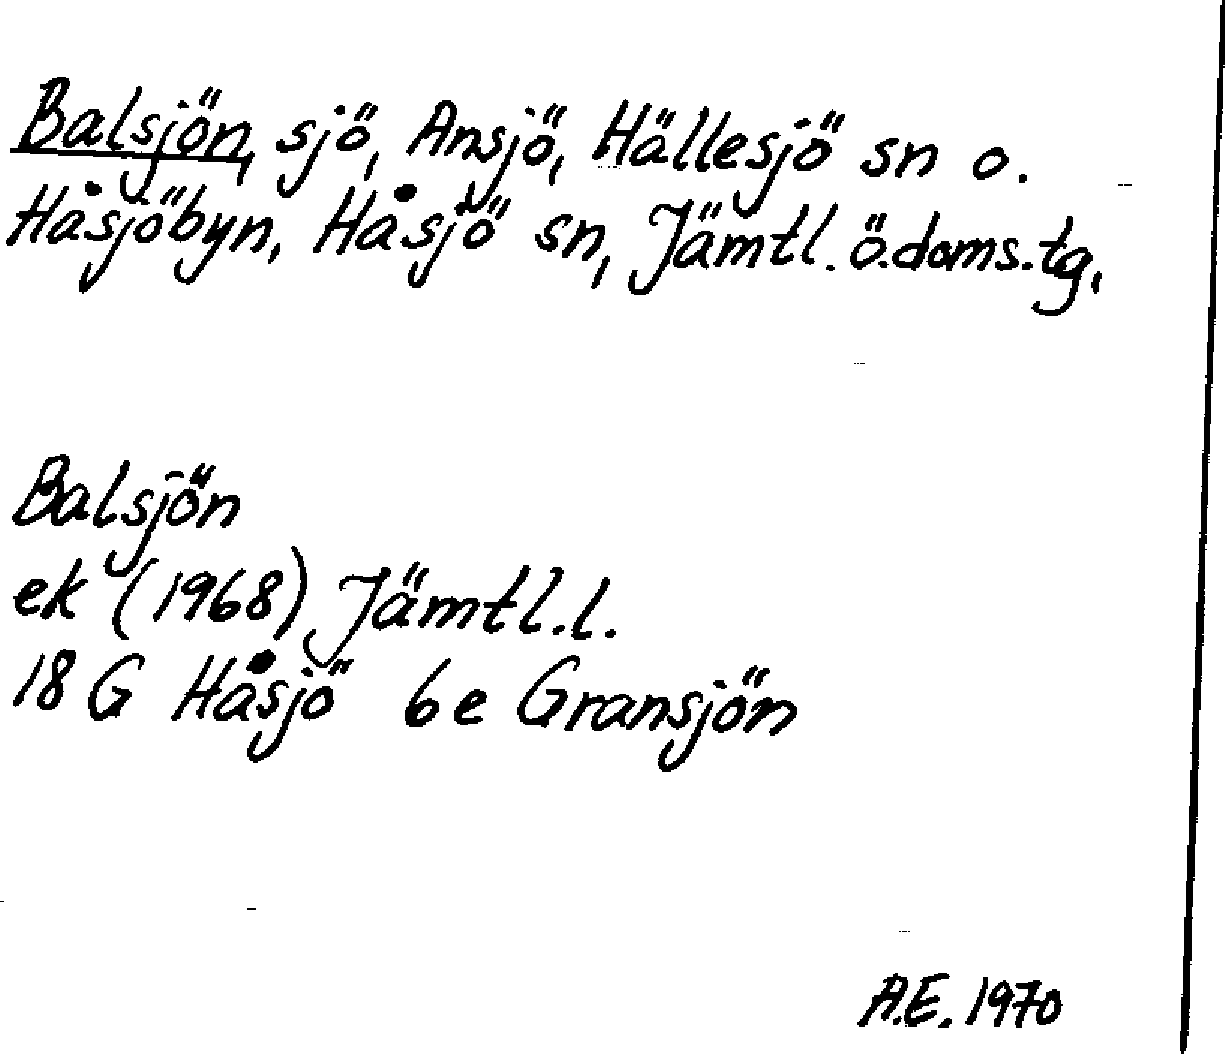 Balsjön, sjö, Ansjö, Hällesjö sn o.
Håsjöbyn, Håsjö sn, Jämtl. ö.doms.tg,
Balsjön
ek (1968) Jämtl.l.
18 G Håsjö 6e Gransjön
A.E. 1970